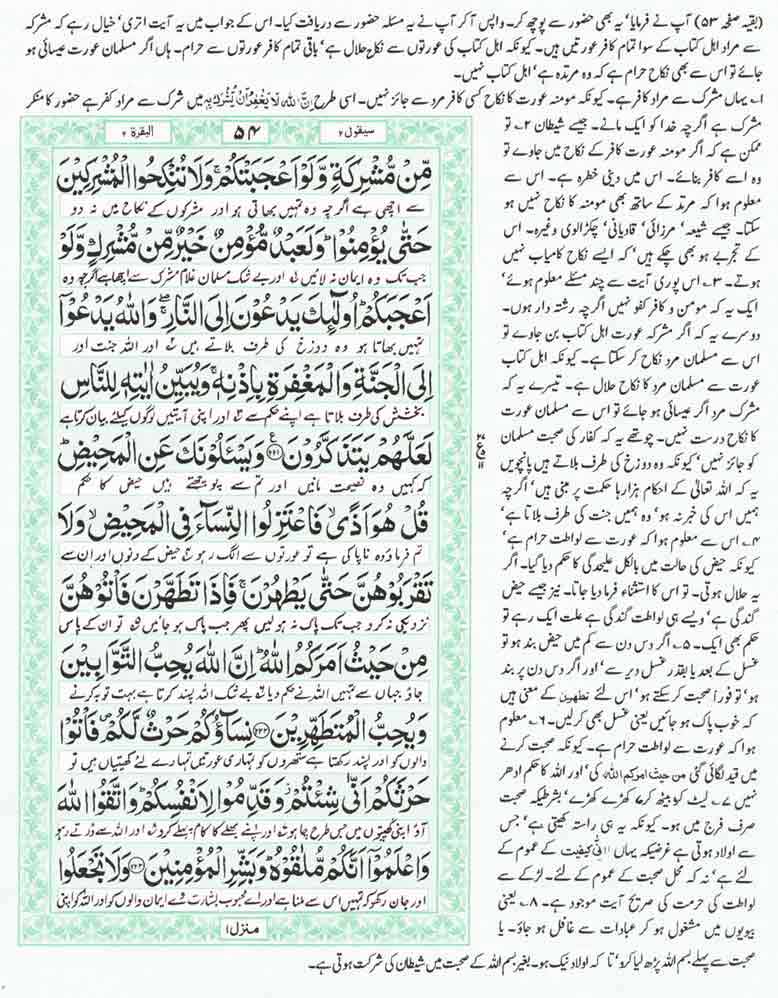 (بقیہ صفحہ ۵۳) آپ نے فرمایا' یہ بھی حضور سے پوچھ کر۔ واپس آ کر آپ نے یہ مسئلہ حضور سے دریافت کیا۔ اس کے جواب میں یہ آیت اتری' خیال رہے کہ مشرکہ
سے مراد اہل کتاب کے سوا تمام کافر عورتیں ہیں۔ کیونکہ اہل کتاب کی عورتوں سے نکاح حلال ہے' باقی تمام کافر عورتوں سے حرام۔ ہاں اگر مسلمان عورت عیسائی ہو
جائے تو اس سے بھی نکاح حرام ہے کہ وہ مرتدہ ہے' اہل کتاب نہیں۔
۱؎ یہاں مشرک سے مراد کافر ہے۔ کیونکہ مومنہ عورت کا نکاح کسی کافر مرد سے جائز نہیں۔ اسی طرح اِنَّ اللہَ لَا یَغْفِرُ اَنْ یُّشْرَکَ بِہٖ میں شرک سے مراد کفر ہے حضور کا منکر
مشرک ہے اگرچہ خدا کو ایک مانے۔ جیسے شیطان ۲؎ تو
ممکن ہے کہ اگر مومنہ عورت کافر کے نکاح میں جاوے تو
وہ اسے کافر بنائے۔ اس میں دینی خطرہ ہے۔ اس سے
معلوم ہوا کہ مرتد کے ساتھ بھی مومنہ کا نکاح نہیں ہو
سکتا۔ جیسے شیعہ' مرزائی' قادیانی' چکڑالوی وغیرہ۔ اس
کے تجربے ہو بھی چکے ہیں' کہ ایسے نکاح کامیاب نہیں
ہوتے۔ ۳؎ اس پوری آیت سے چند مسئلے معلوم ہوئے'
ایک یہ کہ مومن و کافر کفو نہیں اگرچہ رشتہ دار ہوں۔
دوسرے یہ کہ اگر مشرکہ عورت اہل کتاب بن جاوے تو
اس سے مسلمان مرد نکاح کر سکتا ہے۔ کیونکہ اہل کتاب
عورت سے مسلمان مرد کا نکاح حلال ہے۔ تیسرے یہ کہ
مشرک مرد اگر عیسائی ہو جائے تو اس سے مسلمان عورت
کا نکاح درست نہیں۔ چوتھے یہ کہ کفار کی صحبت مسلمان
کو جائز نہیں' کیونکہ وہ دوزخ کی طرف بلاتے ہیں پانچویں
یہ کہ اللہ تعالیٰ کے احکام ہزارہا حکمت پر مبنی ہیں' اگرچہ
ہمیں اس کی خبر نہ ہو' وہ ہمیں جنت کی طرف بلاتا ہے'
۴؎ اس سے معلوم ہوا کہ عورت سے لواطت حرام ہے'
کیونکہ حیض کی حالت میں بالکل علیحدگی کا حکم دیا گیا۔ اگر
یہ حلال ہوتی۔ تو اس کا استثناء فرما دیا جاتا۔ نیز جیسے حیض
گندگی ہے' ویسے ہی لواطت گندگی ہے علت ایک رہے تو
حکم بھی ایک۔ ۵؎ اگر دس دن سے کم میں حیض بند ہو تو
غسل کے بعد یا بقدر غسل دیر سے' اور اگر دس دن پر بند
ہو' تو فوراً صحبت کر سکتے ہو' اس لئے تطہرن کے معنی ہیں
کہ خوب پاک ہو جائیں یعنی غسل بھی کرلیں۔ ۶؎ معلوم
ہوا کہ عورت سے لواطت حرام ہے۔ کیونکہ صحبت کرنے
میں قید لگائی گئی من حیث امرکم اللہ کی' اور اللہ کا حکم ادھر
نہیں ۷؎ لیٹ کو بیٹھ کر کھڑے کھڑے' بشرطیکہ صحبت
صرف فرج میں ہو۔ کیونکہ یہ ہی راستہ کھیتی ہے' جس
سے اولاد ہوتی ہے غرضیکہ یہاں انّٰی کیفیت کے عموم کے
لئے ہے' نہ کہ محل صحبت کے عموم کے لئے۔ لڑکے سے
لواطت کی حرمت کی صریح آیت موجود ہے۔ ۸؎ یعنی
بیویوں میں مشغول ہو کر عبادات سے غافل نہ ہو جاؤ۔ یا
سیقول ۲ ۵۴ البقرۃ ۲
مِّنۡ مُّشۡرِکَۃٍ وَّلَوۡ اَعۡجَبَتۡکُمۡ ۚ وَلَا تُنۡکِحُوا الۡمُشۡرِکِیۡنَ
سے اچھی ہے اگرچہ وہ تمہیں بھاتی ہو اور مشرکوں کے نکاح میں نہ دو
حَتّٰی یُؤۡمِنُوۡا ؕ وَلَعَبۡدٌ مُّؤۡمِنٌ خَیۡرٌ مِّنۡ مُّشۡرِکٍ وَّلَوۡ
جب تک وہ ایمان نہ لائیں اور بے شک مسلمان غلام مشرک سے اچھا ہے اگرچہ وہ
اَعۡجَبَکُمۡ ؕ اُولٰٓئِکَ یَدۡعُوۡنَ اِلَی النَّارِ ۚۖ وَاللّٰہُ یَدۡعُوۡۤا
تمہیں بھاتا ہو وہ دوزخ کی طرف بلاتے ہیں اور اللہ جنت اور
اِلَی الۡجَنَّۃِ وَالۡمَغۡفِرَۃِ بِاِذۡنِہٖ ۚ وَیُبَیِّنُ اٰیٰتِہٖ لِلنَّاسِ
بخشش کی طرف بلاتا ہے اپنے حکم سے اور اپنی آیتیں لوگوں کیلئے بیان کرتا ہے
لَعَلَّہُمۡ یَتَذَکَّرُوۡنَ ﴿۲۲۱﴾ وَیَسۡـَٔلُوۡنَکَ عَنِ الۡمَحِیۡضِ ؕ
کہ کہیں وہ نصیحت مانیں اور تم سے پوچھتے ہیں حیض کا حکم
قُلۡ ہُوَ اَذًی ۙ فَاعۡتَزِلُوا النِّسَآءَ فِی الۡمَحِیۡضِ ۙ وَلَا
تم فرماؤ وہ ناپاکی ہے تو عورتوں سے الگ رہو حیض کے دنوں اور ان سے
تَقۡرَبُوۡہُنَّ حَتّٰی یَطۡہُرۡنَ ۚ فَاِذَا تَطَہَّرۡنَ فَاۡتُوۡہُنَّ
نزدیکی نہ کرو جب تک پاک نہ ہو لیں پھر جب پاک ہو جائیں تو ان کے پاس
مِنۡ حَیۡثُ اَمَرَکُمُ اللّٰہُ ؕ اِنَّ اللّٰہَ یُحِبُّ التَّوَّابِیۡنَ
جاؤ جہاں سے تمہیں اللہ نے حکم دیا بے شک اللہ پسند کرتا ہے بہت توبہ کرنے
وَیُحِبُّ الۡمُتَطَہِّرِیۡنَ ﴿۲۲۲﴾ نِسَآؤُکُمۡ حَرۡثٌ لَّکُمۡ ۪ فَاۡتُوۡا
والوں کو اور پسند رکھتا ہے ستھروں کو تمہاری عورتیں تمہارے لئے کھیتیاں ہیں تو
حَرۡثَکُمۡ اَنّٰی شِئۡتُمۡ ۫ وَقَدِّمُوۡا لِاَنۡفُسِکُمۡ ؕ وَاتَّقُوا اللّٰہَ
آؤ اپنی کھیتوں میں جس طرح چاہو اور اپنے بھلے کا کام پہلے کرو اور اللہ سے ڈرتے رہو
وَاعۡلَمُوۡۤا اَنَّکُمۡ مُّلٰقُوۡہُ ؕ وَبَشِّرِ الۡمُؤۡمِنِیۡنَ ﴿۲۲۳﴾ وَلَا تَجۡعَلُوا
اور جان رکھو کہ تمہیں اس سے ملنا ہے اور اے محبوب بشارت دو ایمان والوں کو اور اللہ کو اپنی
منزل ۱
صحبت سے پہلے بسم اللہ پڑھ لیا کرو' تا کہ اولاد نیک ہو۔ بغیر بسم اللہ کے صحبت میں شیطان کی شرکت ہوتی ہے۔